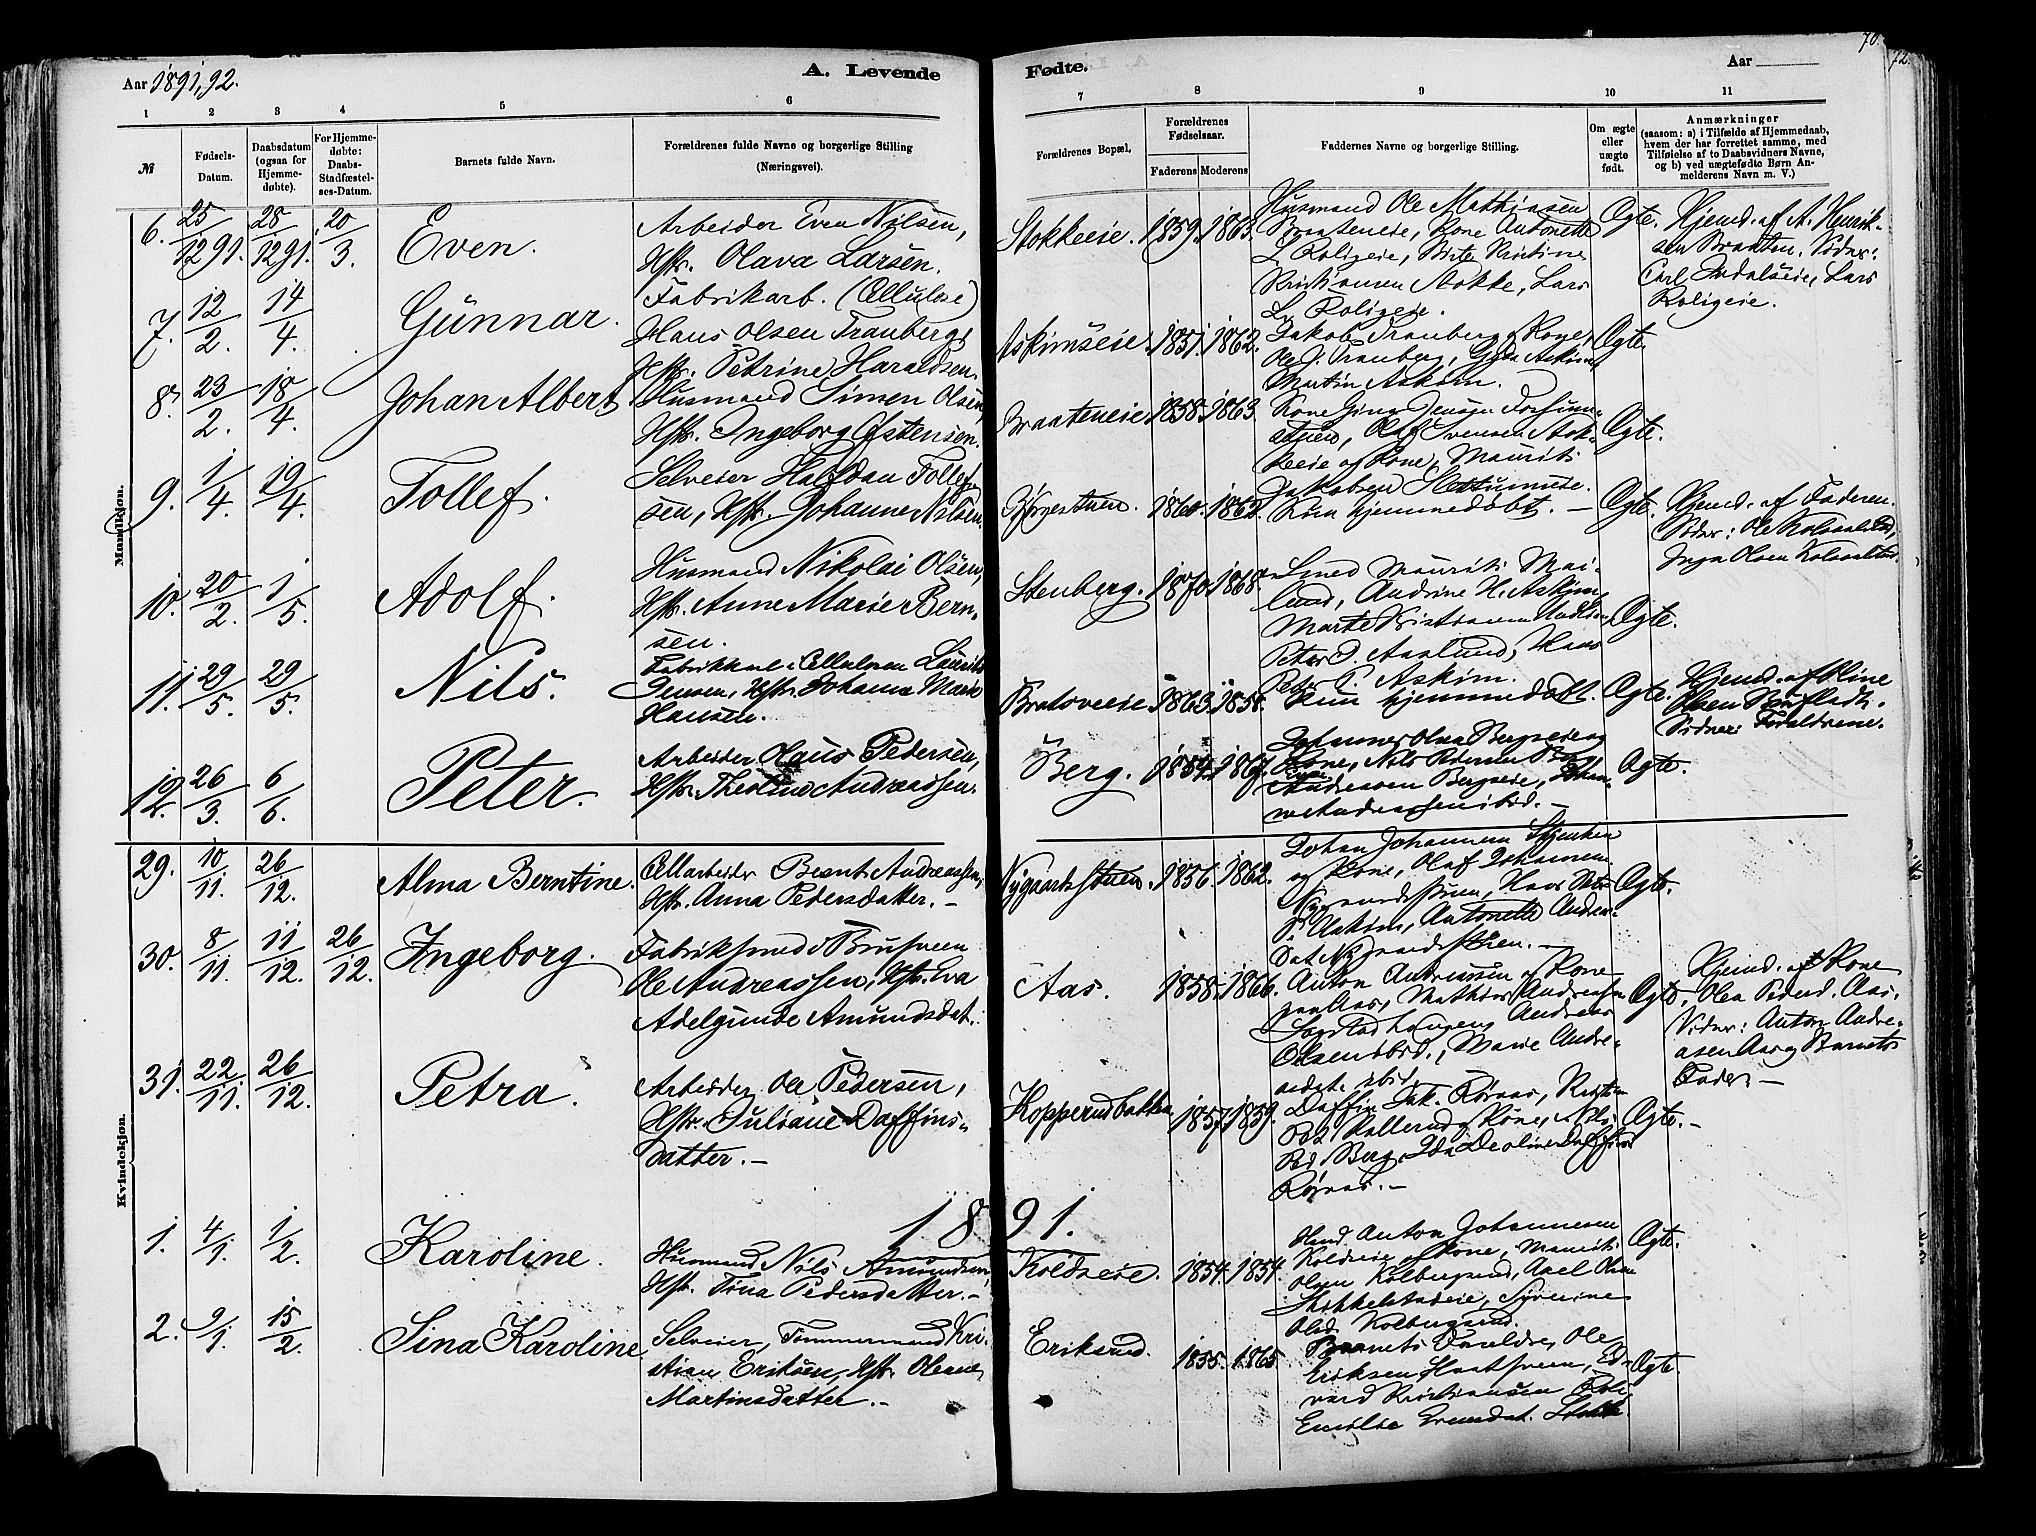 Aar 1891, 92.
A. Levende
Fødte.
Aar
70.
72.
1
2
3
4
5
6
7
8
9
10
11
№
Fødsels-
Datum.
Daabsdatum
(ogsaa for
Hjemme-
døbte).
For Hjemme-
døbte:
Daabs-
Stadfæstel-
ses-Datum.
Barnets fulde Navn.
Forældrenes fulde Navne og borgerlige Stilling
(Næringsvei).
Forældrenes Bopæl.
Forældrenes
Fødselsaar.
Faderens
Moderens
Faddernes Navne og borgerlige Stilling.
Om ægte
eller
uægte
født.
Anmærkninger
(saasom: a) i Tilfælde af Hjemmedaab,
hvem der har forrettet samme, med
Tilføielse af to Daabsvidners Navne,
og b) ved uægtefødte Børn An-
melderens Navn m. V.)
Mandkjøn.
6. 25/12 91. 28/12 91. 20/3. Even.
Arbeider Even Nilsen,
Hstr. Olava Larsen.
Stokkeeie. 1859. 1863.
Husmand Ole Mathiasen
Braateneie, Kone Antonette
L. Roligeie, Birte Kristine
Kristiansen Stokke, Lars
L. Roligeie.
Ægte.
Hjemd. af A. Henrik-
sen Braaten. Vidner:
Carl Indalseie, Lars
Roligeie.
7. 12/2. 14/4. Gunnar.
Fabrikarb. (Cellulose)
Hans Olsen Tranberg,
Hstr. Petrine Haraldsen.
Askimseie. 1851. 1862.
Jakob Tranberg & Kone,
Ole J. Tranberg, Gyda Askim,
Martin Askim.
Ægte.
8. 23/2. 18/4. Johan Albert
Husmand Simen Olsen,
Hstr. Ingeborg Østensen.
Braateneie. 1858. 1863.
Kone Gina Jensen
Olaf Svensen
og Kone, Maurits
Jakobsen
Ægte.
9. 1/4. 19/4. Tollef.
Selveier Halfdan Tollef-
sen, Hstr. Johanne Nilsen.
1860. 1862.
Kun hjemmedøbt. —
Ægte.
Hjemd. af Faderen.
Vidner: Ole
Inga Olsen
10. 20/2. 1/5. Adolf.
Husmand Nikolai Olsen,
Hstr. Anne Marie Bern-
sen.
Stenberg. 1870. 1868.
Smed Maurits Mai-
lund, Andrine H. Askim,
Marte Kristiansen
Peter D. Aaslund, Hans
Peter P. Askim.
Ægte.
11. 29/5. 29/5. Nils.
Fabrikkarl i Cellulosen Laurits
Jensen, Hstr. Johanne Marie
Hansen.
1863. 1858.
Kun hjemmedøbt.
Ægte.
Hjemd. af Oline
Olsen
Vidner: Forældrene.
12. 26/3. 6/6. Peter.
Arbeider Hans Pedersen,
Hstr. Theoline Andreassen.
Berg. 1854. 1867.
Johannes Olsen Bergseie og
Kone, Nils Pedersen
Andreasen Bergseie,
Ægte.
Kvindekjøn.
29. 10/11. 26/12. Alma Berntine.
Cellarbeider Bernt Andreassen,
Hstr. Anna Pedersdatter. —
Nygaardsstuen. 1856. 1862.
Johan Johannesen
og Kone, Olaf Johannesen
Nygaardsstuen, Hans Peter
P. Askim, Antonette Andrea-
dat. Nygaardsstuen. —
Ægte.
30. 8/11. 11/12. 26/12. Ingeborg.
Fabriksmed i Brusveen
Ole Andreassen, Hstr. Eva
Adelgunde Amundsdat.
Aas. 1858. 1866.
Anton Andreasen og Kone
Mathias Andreasen
Andreas
Olsen ibid., Marie Andre-
asdat. ibid.
Ægte.
Hjemd. af Kone
Olea Pedersd. Aas.
Vidner: Anton Andre-
asen Aas og Barnets
Fader. —
31. 22/11. 26/12. Petra.
Arbeider Ole Pedersen,
Hstr. Juliane Daffins-
datter. —
Kopperudbakken 1857. 1859.
Daffin Jak. Rørvas, Kristian
Ped. Kallerud & Kone, Nils
Pd. Berg, Ida Deoline Daffinsd.
Rørvas. —
Ægte. —
1891.
1. 4/1. 1/2. Karoline.
Husmand Nils Amundsen,
Hstr. Tina Pedersdatter. —
Koldseie. 1854. 1854.
Hmd. Anton Johannesen
Koldseie og Kone, Maurits
Olsen Kolbergrud, Axel Olsen
Olsd. Kolbergrud.
Ægte.
2. 9/1. 15/2. Sina Karoline
Selveier, Tømmermand Kri-
stian Eriksen, Hstr. Oleane
Martinsdatter. —
Eriksrud. 1855. 1865.
Barnets Forældre, Ole
Eriksen Haatsveen, Ed-
vard Kristiansen
Emilie Evensdat. Stokke.
Ægte.